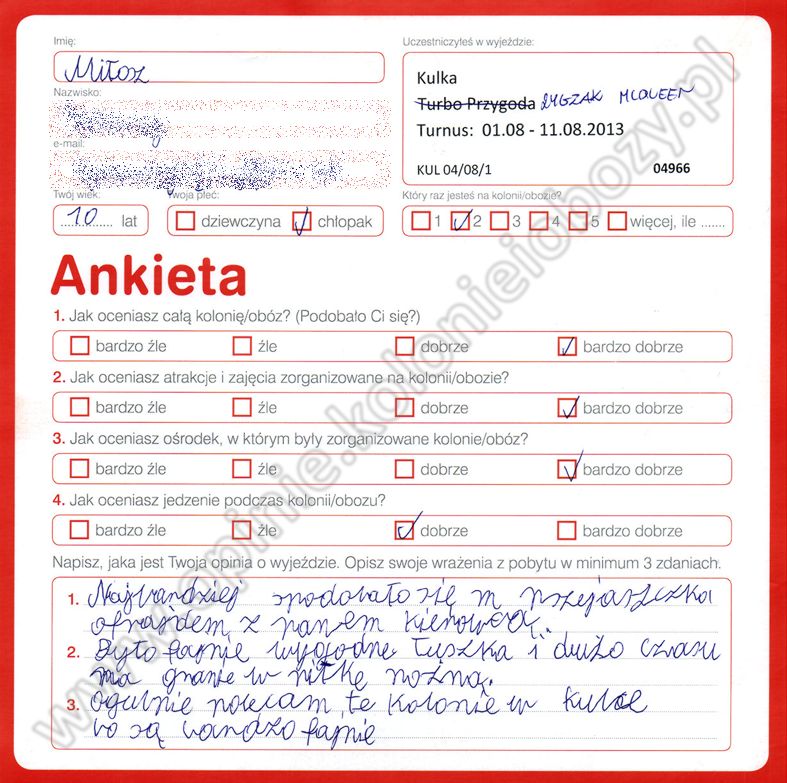 Imię:
Miłosz
Uczestniczyłeś w wyjeździe:
Kulka
Turbo Przygoda ZYGZAK MCQUEEN
Turnus: 01.08 - 11.08.2013
KUL 04/08/1 04966
Nazwisko:
e-mail:
Twój wiek:
10 lat
Twoja płeć:
dziewczyna chłopak
Który raz jesteś na kolonii/obozie?
1 2 3 4 5 więcej, ile .......
Ankieta
1. Jak oceniasz całą kolonię/obóz? (Podobało Ci się?)
bardzo źle źle dobrze bardzo dobrze
2. Jak oceniasz atrakcje i zajęcia zorganizowane na kolonii/obozie?
bardzo źle źle dobrze bardzo dobrze
3. Jak oceniasz ośrodek, w którym były zorganizowane kolonie/obóz?
bardzo źle źle dobrze bardzo dobrze
4. Jak oceniasz jedzenie podczas kolonii/obozu?
bardzo źle źle dobrze bardzo dobrze
Napisz, jaka jest Twoja opinia o wyjeździe. Opisz swoje wrażenia z pobytu w minimum 3 zdaniach.
1. Najbardziej spodobało się m
z panem
2. Było fajnie wygodne łuszka i dużo czasu
na granie w piłkę nożną.
3. Ogulnie polecam te kolonie w Kulce
bo są bardzo fajnie
www.opinie.kolonieiobozy.pl